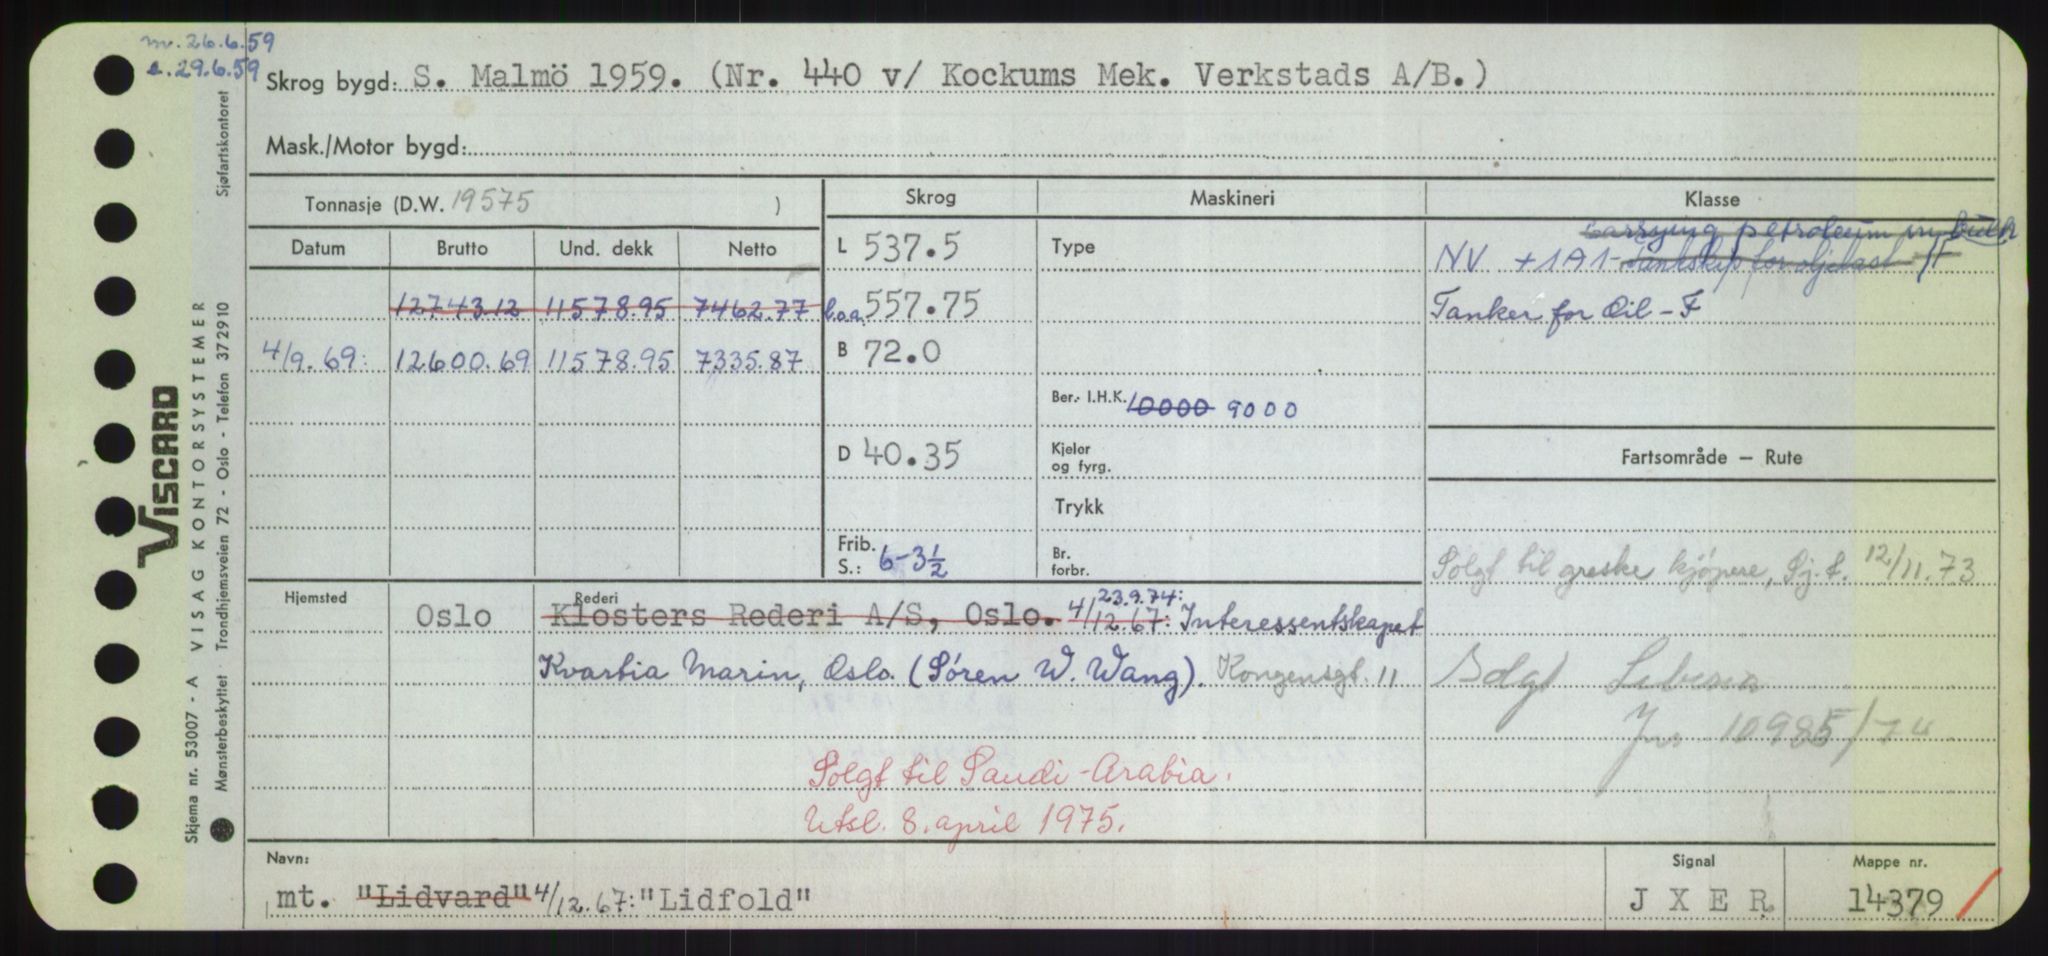 m. 26.6.59
e. 29.6.59
Skrog bygd: S. Malmö 1959. (Nr. 440 v/ Kockums Mek. Verkstads A/B.)
Mask./Motor bygd:
Tonnasje (D.W. 19575 )
Skrog Maskineri Klasse
Datum Brutto Und. dekk Netto
12743.12 11578.95 7462.77
4/9.69: 12600.69 11578.95 7335.87
L 537.5
l.o.a. 557.75
B 72.0
D 40.35
Frib.
S.: 6-3½
Type
Ber. I.H.K. 10000 9000
Kjeler
og fyrg.
Trykk
Br.
forbr.
carrying petroleum in bulk
NV +1A1- tankskip for oljelast F
Tanker for Oil - F
Fartsområde — Rute
Solgt til greske kjøpere, Sj.f. 12/11.73
Solgt
Jnr 10985/74
Hjemsted Oslo
Rederi
Klosters Rederi A/S, Oslo. 4/12.67: 23.9.74: Interessentskapet
Kvartia Marin, Oslo (Sören W. Wang). Kongensgt. 11
Solgt til Saudi-Arabia.
Utsl. 8. april 1975.
Navn:
mt. "Lidvard" 4/12.67: "Lidfold"
Signal
J X E R
Mappe nr.
14379
VISCARD
VISAG KONTORSYSTEMER
Sjøfartskontoret
Skjema nr. 53007 - A
Mønsterbeskyttet Trondhjemsveien 72 - Oslo - Telefon 372910